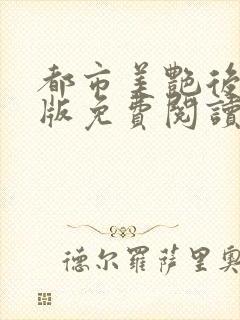 都市美艷後
版免費閱讀
德尔羅萨里奧